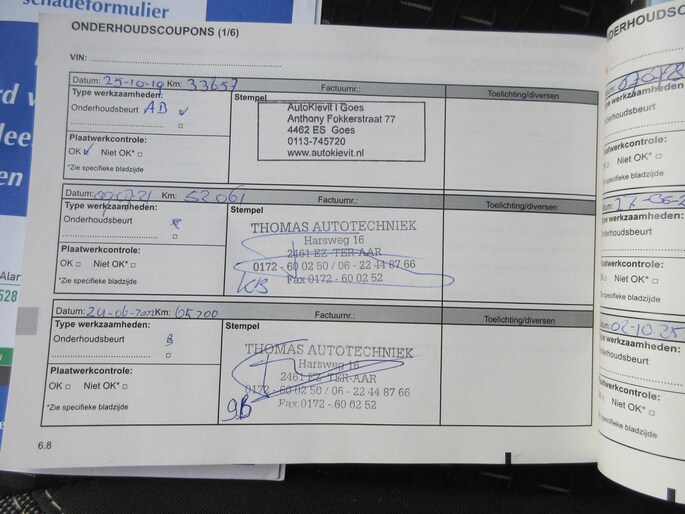 schadeformulier
ONDERHOUDSCOUPONS (1/6)
VIN:
Datum: 25-10-19 Km: 33657 Factuurnr.: Toelichting/diversen
Type werkzaamheden:
Onderhoudsbeurt AB
Plaatwerkcontrole:
OK Niet OK*
*Zie specifieke bladzijde
Stempel
AutoKievit I Goes
Anthony Fokkerstraat 77
4462 ES Goes
0113-745720
www.autokievit.nl
Datum: Km: 52061 Factuurnr.: Toelichting/diversen
Type werkzaamheden:
Onderhoudsbeurt
Plaatwerkcontrole:
OK Niet OK*
*Zie specifieke bladzijde
Stempel
THOMAS AUTOTECHNIEK
Harsweg 16
2461 EZ TER-AAR
0172 - 60 02 50 / 06 - 22 44 87 66
Fax 0172 - 60 02 52
Datum: 24-06-2022 Km: 65700 Factuurnr.: Toelichting/diversen
Type werkzaamheden:
Onderhoudsbeurt B
Plaatwerkcontrole:
OK Niet OK*
*Zie specifieke bladzijde
Stempel
THOMAS AUTOTECHNIEK
Harsweg 16
2461 EZ TER-AAR
0172 - 60 02 50 / 06 - 22 44 87 66
Fax 0172 - 60 02 52
6.8
werkzaamheden:
Onderhoudsbeurt
Plaatwerkcontrole:
Niet OK*
specifieke bladzijde
Type werkzaamheden:
Onderhoudsbeurt
Plaatwerkcontrole:
Niet OK*
*Zie specifieke bladzijde
02-10-25
Type werkzaamheden:
Onderhoudsbeurt
Plaatwerkcontrole:
Niet OK*
specifieke bladzijde
528